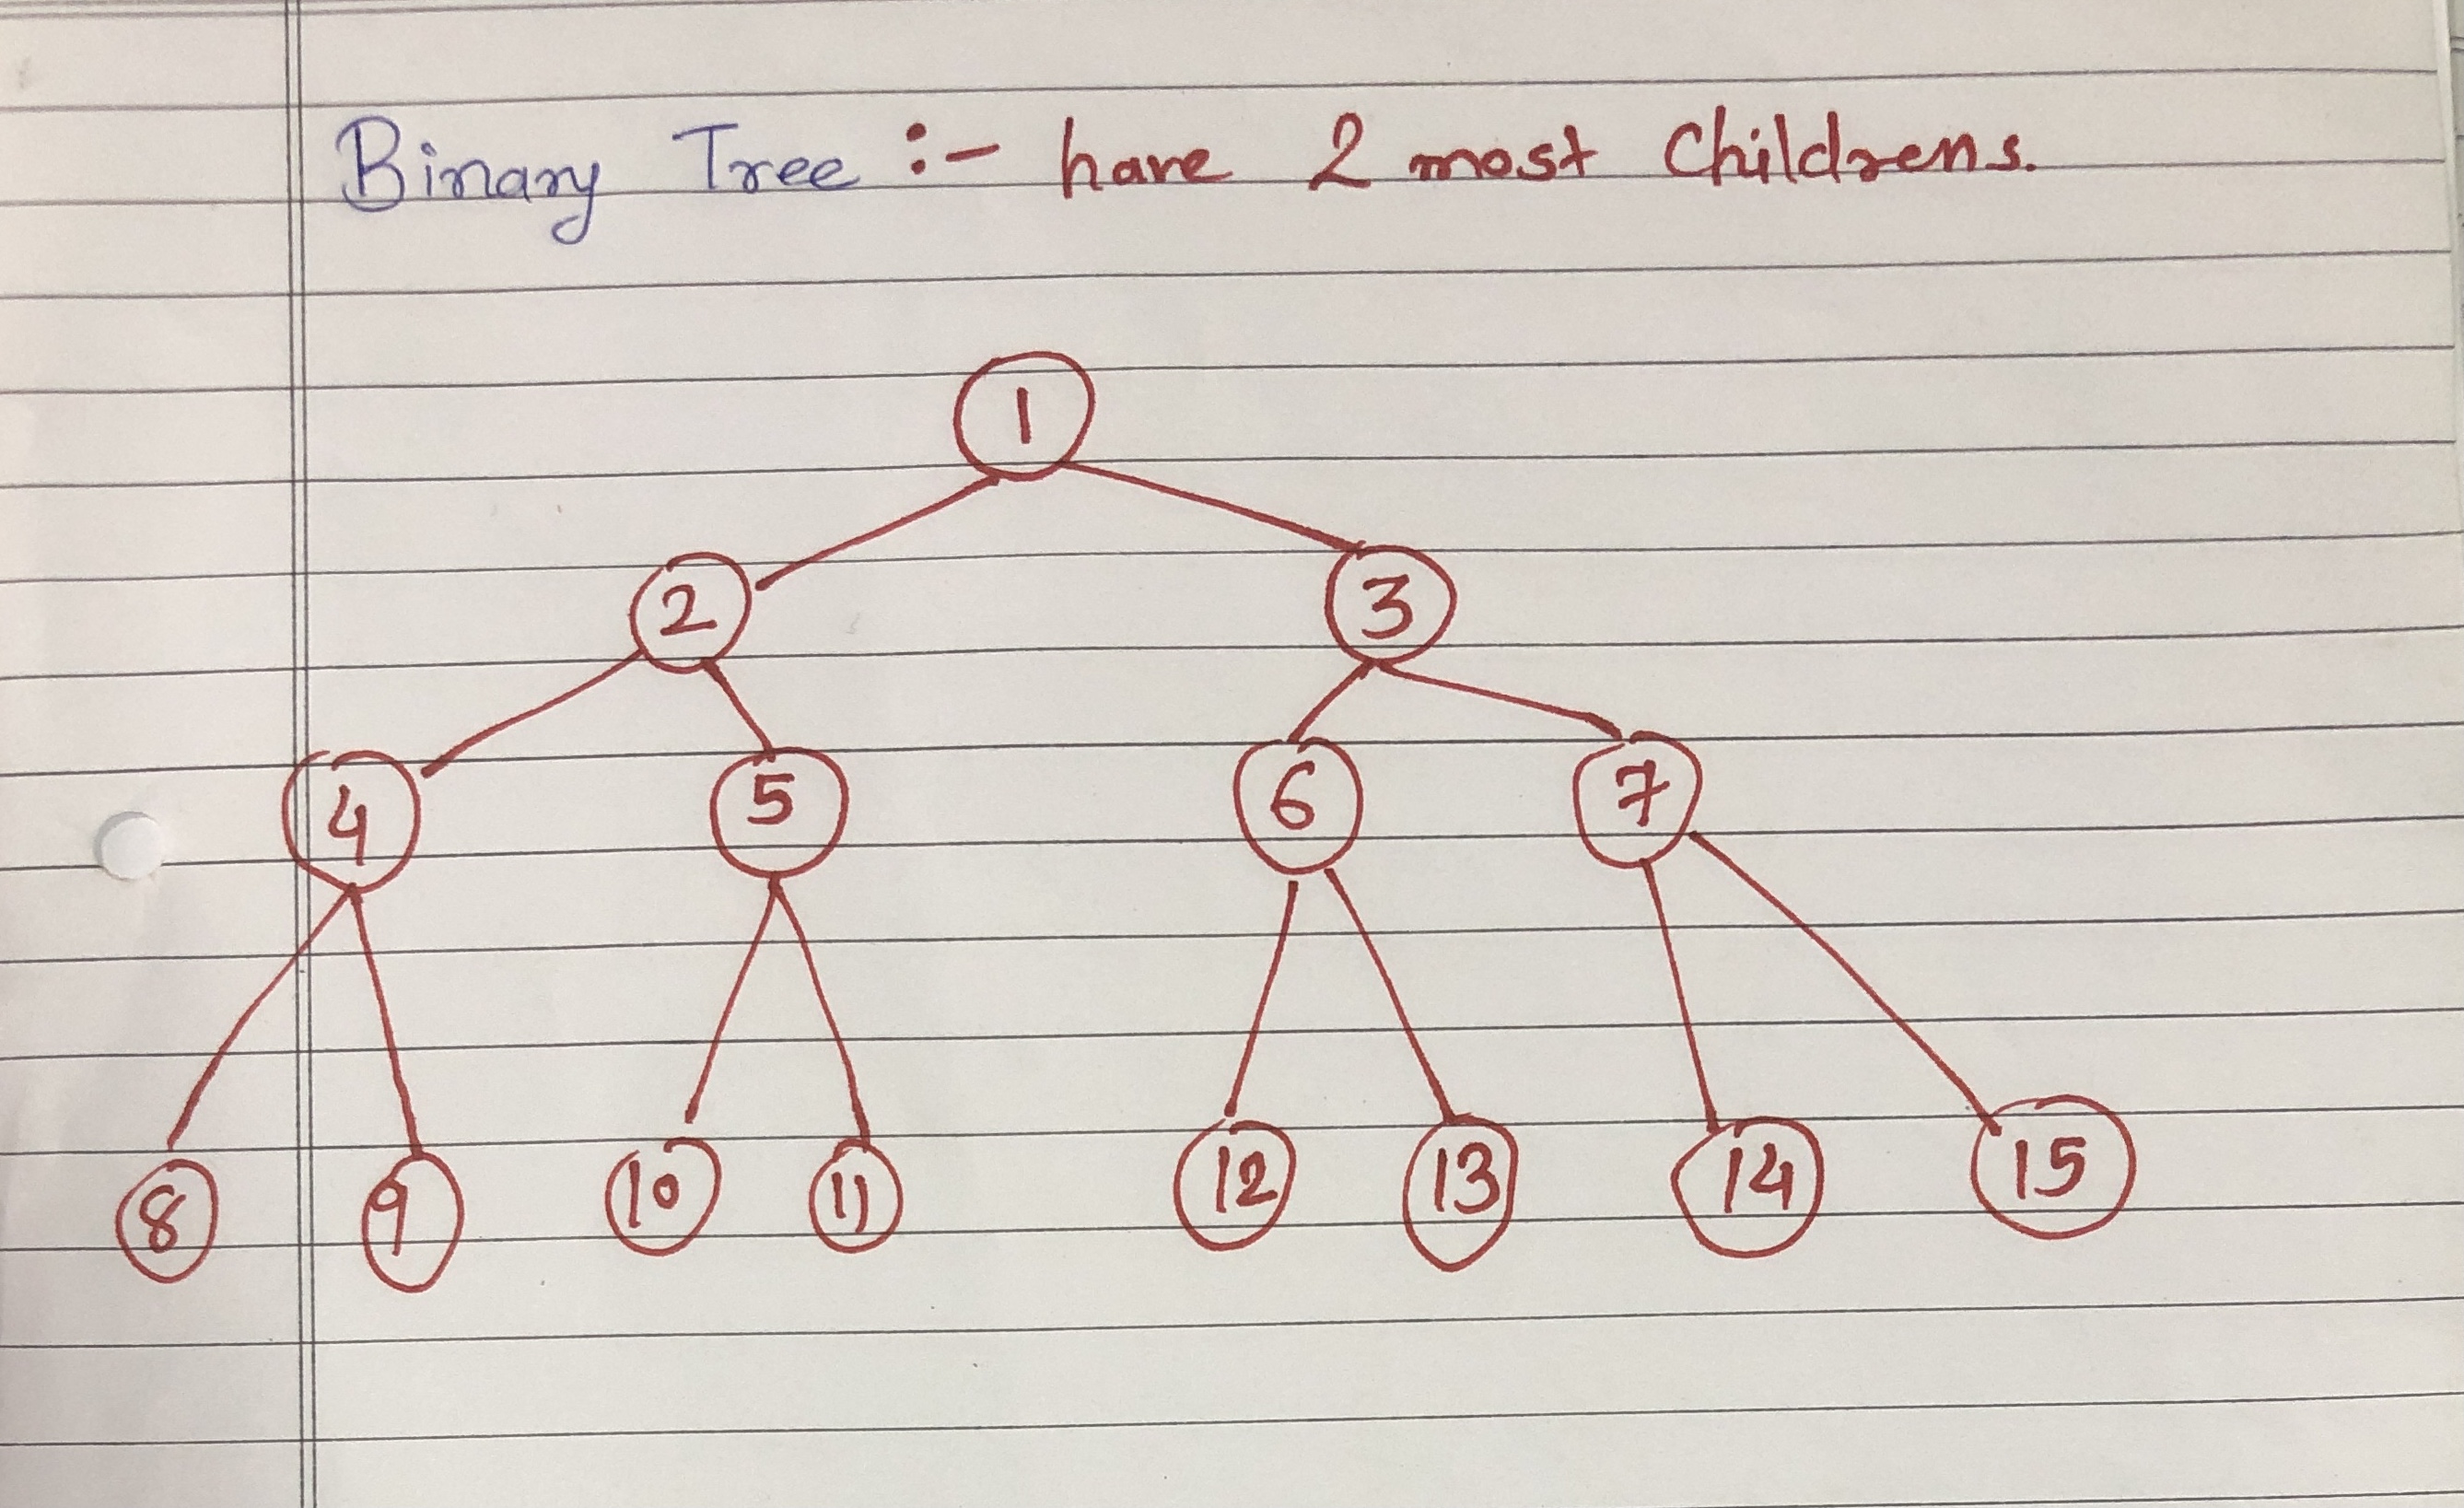 Binary Tree :- have 2 most Childrens.
1
2 3
4 5 6 7
8 9 10 11 12 13 14 15